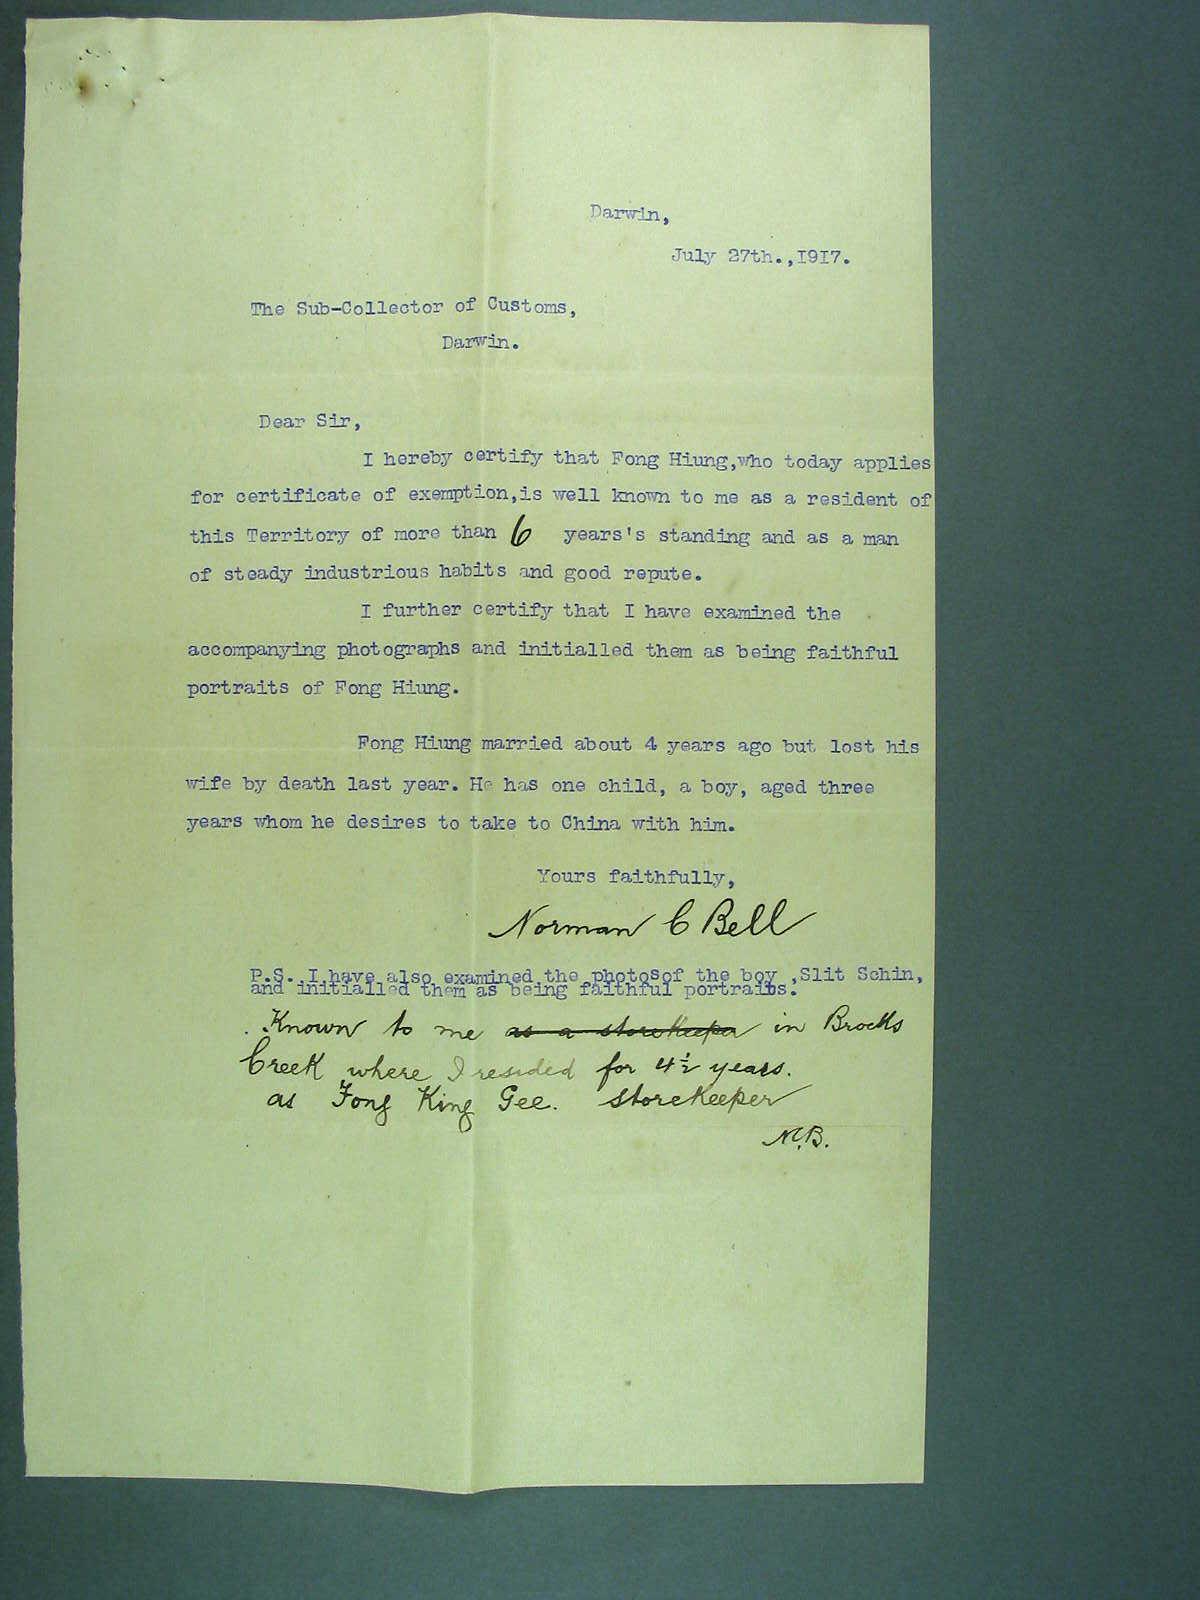 Darwin,
July 27th.,1917.
The Sub-Collector of Customs,
Darwin.
Dear Sir,
I hereby certify that Fong Hiung,who today applies
for certificate of exemption,is well known to me as a resident of
this Territory of more than 6 years's standing and as a man
of steady industrious habits and good repute.
I further certify that I have examined the
accompanying photographs and initialled them as being faithful
portraits of Fong Hiung.
Fong Hiung married about 4 years ago but lost his
wife by death last year. He has one child, a boy, aged three
years whom he desires to take to China with him.
Yours faithfully,
Norman C Bell
P.S. I have also examined the photosof the boy ,Slit Schin,
and initialled them as being faithful portraits.
Known to me as a storekeeper in Brocks
Creek where I resided for 4½ years.
as Fong King Gee. storekeeper
N.B.